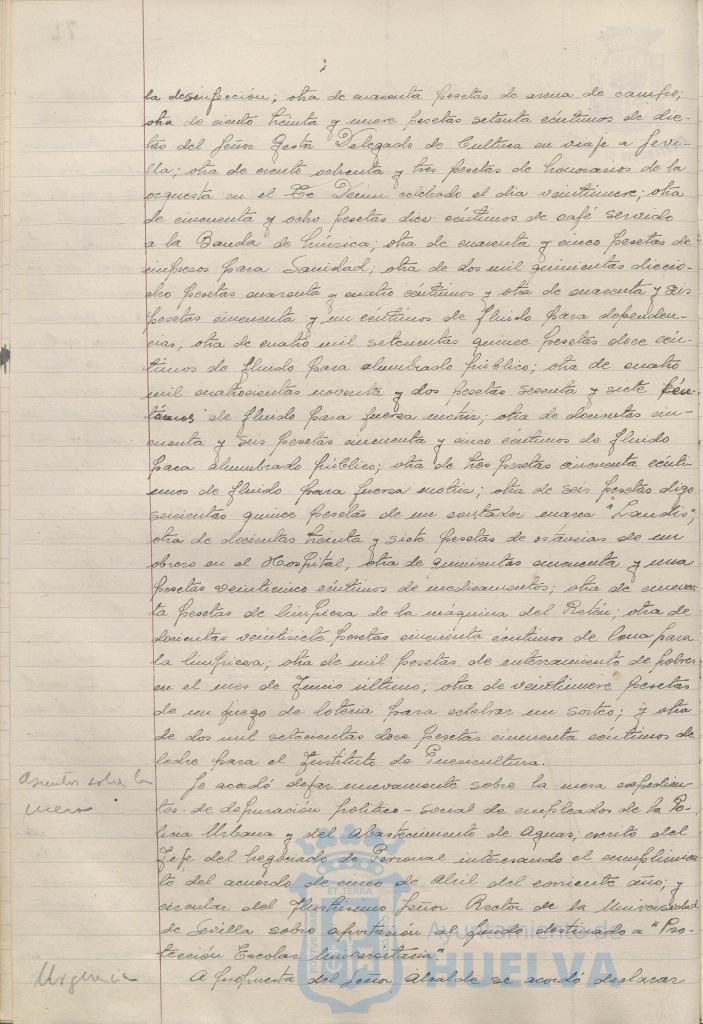 la desinfección; otra de cuarenta pesetas de arena de campo;
otra de ciento treinta y nueve pesetas setenta céntimos de die-
tas del Señor Gestor Delegado de Cultura en viaje a Sevi-
lla; otra de ciento ochenta y tres pesetas de honorarios de la
orquesta en el Te Deum celebrado el día veintinueve; otra
de cincuenta y ocho pesetas diez céntimos de café servido
a la Banda de Música; otra de cuarenta y cinco pesetas de
impresos para Sanidad; otra de dos mil quinientas diecio-
cho pesetas cuarenta y cuatro céntimos y otra de cuarenta y seis
pesetas cincuenta y un céntimos de fluido para dependen-
cias; otra de cuatro mil setecientas quince pesetas doce cén-
timos de fluido para alumbrado público; otra de cuatro
mil cuatrocientas noventa y dos pesetas sesenta y siete cén-
timos de fluido para fuerza motriz; otra de doscientas cin-
cuenta y seis pesetas cincuenta y cinco céntimos de fluido
para alumbrado público; otra de tres pesetas cincuenta cénti-
mos de fluido para fuerza motriz; otra de seis pesetas digo
seiscientas quince pesetas de un contador marca "Landis";
otra de doscientas treinta y siete pesetas de estancias de un
obrero en el Hospital; otra de quinientas cincuenta y una
pesetas veinticinco céntimos de medicamentos; otra de cincuen-
ta pesetas de limpieza de la máquina del Retén; otra de
doscientas veintisiete pesetas cincuenta céntimos de lona para
la limpieza; otra de mil pesetas de enterramiento de pobres
en el mes de Junio último; otra de veintinueve pesetas
de un juego de lotería para celebrar un sorteo; y otra
de dos mil setecientas doce pesetas cincuenta céntimos de
leche para el Instituto de Puericultura.
Asuntos sobre la
mesa
Se acordó dejar nuevamente sobre la mesa expedien-
tes de depuración político-social de empleados de la Po-
licía Urbana y del Abastecimiento de Aguas; escrito del
Jefe del Negociado de Personal interesando el cumplimien-
to del acuerdo de cinco de Abril del corriente año; y
circular del Ilustrísimo Señor Rector de la Universidad
de Sevilla sobre aportación al fondo destinado a "Pro-
tección Escolar Universitaria".
Urgencia
A propuesta del Señor Alcalde se acordó declarar
Ayuntamiento de
HUELVA